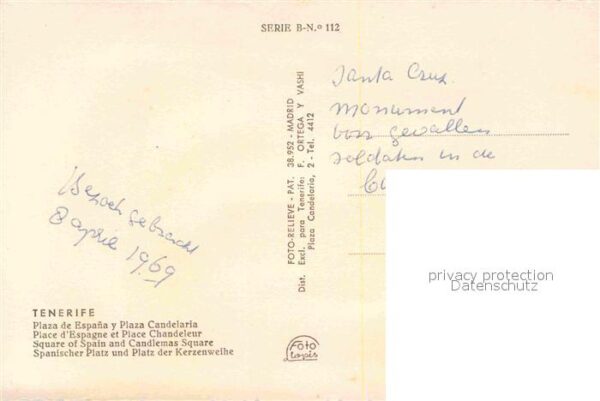 SERIE B-N.º 112
Santa Cruz.
Monument
voor gevallen
soldaten in de
Bezoek gebracht
8 april 1969
FOTO-RELIEVE - PAT. 38.952 - MADRID
Dist. Excl. para Tenerife: F. ORTEGA Y VASHI
Plaza Candelaria, 2 - Tel. 4412
TENERIFE
Plaza de España y Plaza Candelaria
Place d'Espagne et Place Chandeleur
Square of Spain and Candlemas Square
Spanischer Platz und Platz der Kerzenweihe
Foto
privacy protection
Datenschutz